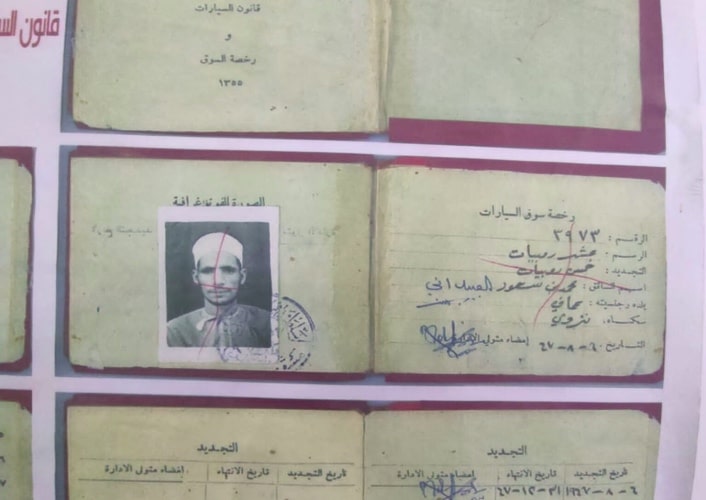 قانون السيارات
و
رخصة السوق
١٣٥٥
قانون
الصورة الفوتوغرافية
رخصة سوق السيارات
الرقم : ٣٩٧٣
الرسم : عشر روبيات
التجديد : خمس روبيات
اسم السائق : محمد بن سعود العبيداني
بلده وجنسيته : عماني
سكناه : نزوي
التاريخ : ٦-٨-٦٧ إمضاء متولي الادارة
التجديد
تاريخ التجديد تاريخ الانتهاء امضاء متولى الادارة
التجديد
تاريخ التجديد تاريخ الانتهاء إمضاء متولى الادارة
٦-٨-١٩٦٧ ٣١-١٢-٦٧